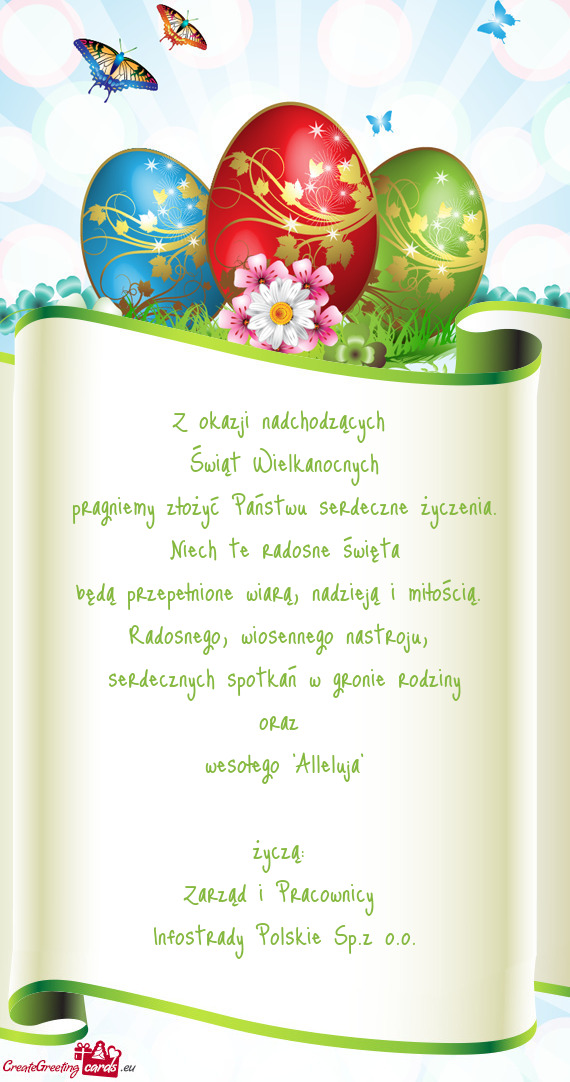 Z okazji nadchodzących
Świąt Wielkanocnych
pragniemy złożyć Państwu serdeczne życzenia.
Niech te radosne święta
będą przepełnione wiarą, nadzieją i miłością.
Radosnego, wiosennego nastroju,
serdecznych spotkań w gronie rodziny
oraz
wesołego "Alleluja"
życzą:
Zarząd i Pracownicy
Infostrady Polskie Sp.z o.o.
CreateGreeting cards .eu